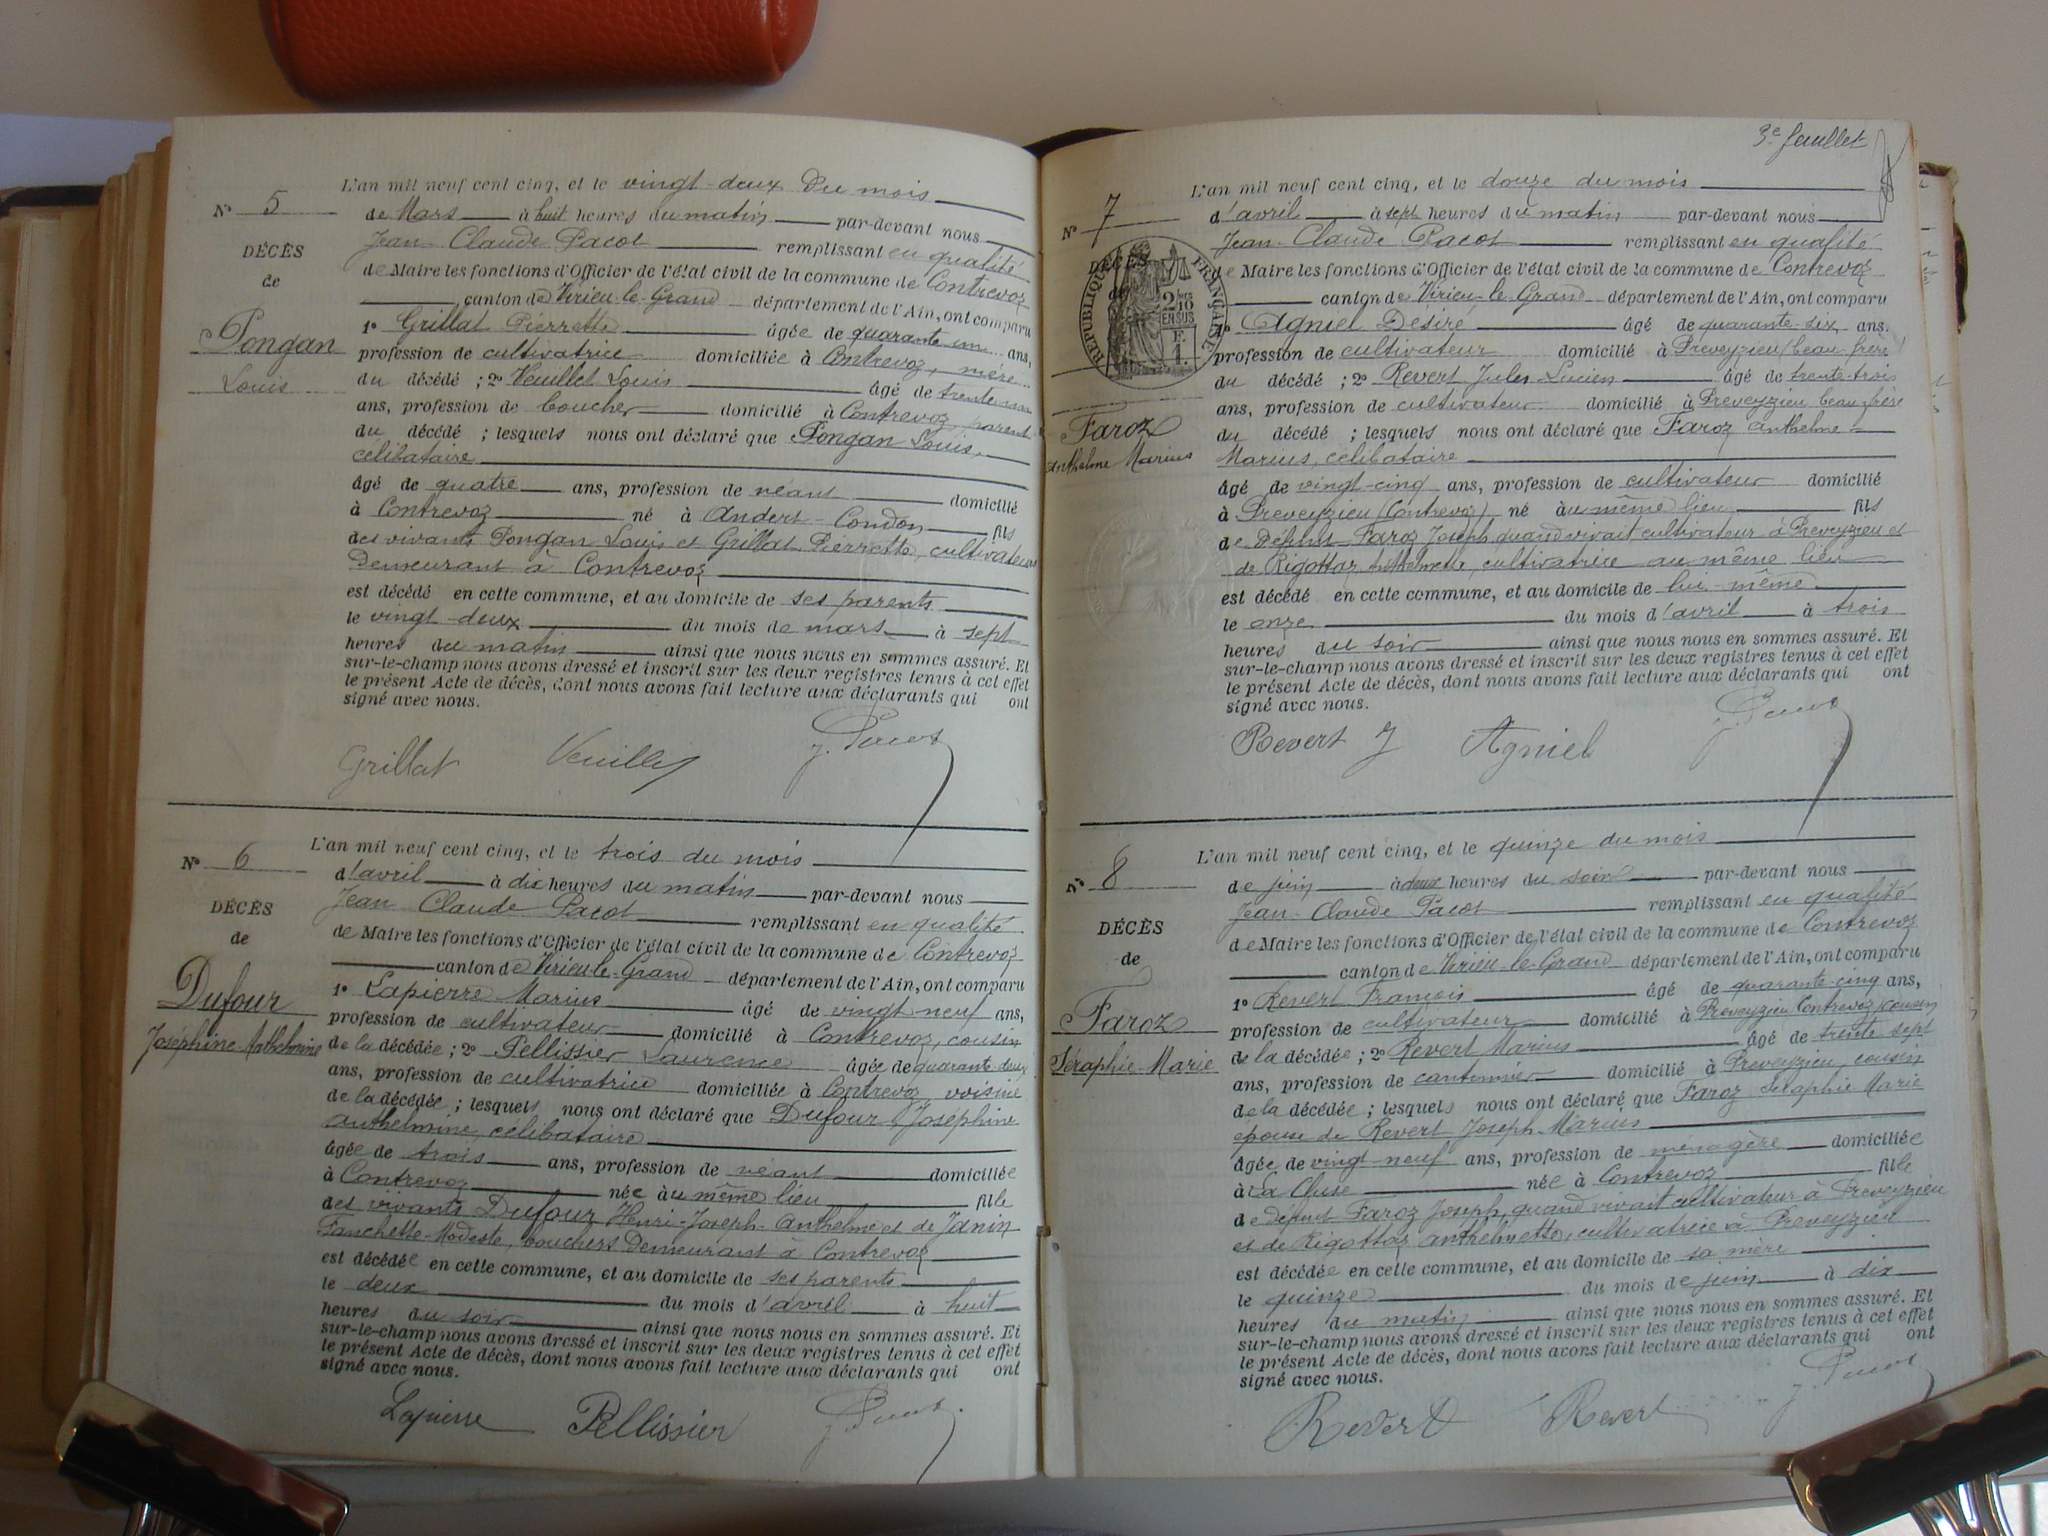 L'an mil neuf cent cinq, et le vingt-deux du mois
N° 5
de Mars à huit heures du matin par-devant nous
Jean-Claude Pacot remplissant en qualité
de Maire les fonctions d'Officier de l'état civil de la commune de Contrevoz
canton de Virieu-le-Grand département de l'Ain, ont comparu
1° Grillat Pierrette âgée de quarante un ans,
profession de cultivatrice domiciliée à Contrevoz, mère
du décédé ; 2° Veuillet Louis âgé de trente
ans, profession de boucher domicilié à Contrevoz parent
du décédé ; lesquels nous ont déclaré que Pongan Louis,
célibataire
DÉCÈS
de
Pongan
Louis
âgé de quatre ans, profession de néant domicilié
à Contrevoz né à Andert-Condon fils
des vivants Pongan Louis et Grillat Pierrette, cultivateurs
Demeurant à Contrevoz
est décédé en cette commune, et au domicile de ses parents
le vingt-deux du mois de mars à sept
heures du matin ainsi que nous nous en sommes assuré. Et
sur-le-champ nous avons dressé et inscrit sur les deux registres tenus à cet effet
le présent Acte de décès, dont nous avons fait lecture aux déclarants qui ont
signé avec nous.
Grillat Veuillet J. Pacot
L'an mil neuf cent cinq, et le trois du mois
N° 6
d'avril à dix heures du matin par-devant nous
Jean Claude Pacot remplissant en qualité
de Maire les fonctions d'Officier de l'état civil de la commune de Contrevoz
canton de Virieu-le-Grand département de l'Ain, ont comparu
1° Lapierre Marius âgé de vingt-neuf ans,
profession de cultivateur domicilié à Contrevoz, cousin
de la décédée ; 2° Pellissier Laurence âgée de quarante-deux
ans, profession de cultivatrice domiciliée à Contrevoz, voisine
de la décédée ; lesquels nous ont déclaré que Dufour Joséphine
anthelmine, célibataire
DÉCÈS
de
Dufour
Joséphine-Anthelmine
âgée de trois ans, profession de néant domiciliée
à Contrevoz née au même lieu fille
des vivants Dufour Henri-Joseph-Anthelme et de Janin
Fanchette-Modeste, bouchers Demeurant à Contrevoz
est décédée en cette commune, et au domicile de ses parents
le deux du mois d'avril à huit
heures du soir ainsi que nous nous en sommes assuré. Et
sur-le-champ nous avons dressé et inscrit sur les deux registres tenus à cet effet
le présent Acte de décès, dont nous avons fait lecture aux déclarants qui ont
signé avec nous.
Lapierre Pellissier J. Pacot
3e feuillet
L'an mil neuf cent cinq, et le douze du mois
N° 7
d'avril à sept heures du matin par-devant nous
Jean-Claude Pacot remplissant en qualité
de Maire les fonctions d'Officier de l'état civil de la commune de Contrevoz
canton de Virieu-le-Grand département de l'Ain, ont comparu
1° Agniel Désiré âgé de quarante-six ans.
profession de cultivateur domicilié à Preveyzieu beau-frère
du décédé ; 2° Revert Jules Lucien âgé de trente-trois
ans, profession de cultivateur domicilié à Preveyzieu beau-frère
du décédé ; lesquels nous ont déclaré que Faroz anthelme
Marius, célibataire
DÉCÈS
de
RÉPUBLIQUE FRANÇAISE
2/10 EN SUS
F. 1.
Faroz
Anthelme Marius
âgé de vingt-cinq ans, profession de cultivateur domicilié
à Preveyzieu (Contrevoz) né au même lieu fils
de Défunt Faroz Joseph quand vivait cultivateur à Preveyzieu et
de Rigottaz Anthelmette, cultivatrice au même lieu
est décédé en cette commune, et au domicile de lui-même
le onze du mois d'avril à trois
heures du soir ainsi que nous nous en sommes assuré. Et
sur-le-champ nous avons dressé et inscrit sur les deux registres tenus à cet effet
le présent Acte de décès, dont nous avons fait lecture aux déclarants qui ont
signé avec nous.
Revert J Agniel J. Pacot
L'an mil neuf cent cinq, et le quinze du mois
N° 8
de juin à deux heures du soir par-devant nous
Jean-Claude Pacot remplissant en qualité
de Maire les fonctions d'Officier de l'état civil de la commune de Contrevoz
canton de Virieu-le-Grand département de l'Ain, ont comparu
1° Revert François âgé de quarante-cinq ans,
profession de cultivateur domicilié à Preveyzieu Contrevoz, cousin
de la décédée ; 2° Revert Marius âgé de trente-sept
ans, profession de cantonnier domicilié à Preveyzieu, cousin
de la décédée ; lesquels nous ont déclaré que Faroz Séraphie Marie
épouse de Revert Joseph-Marius
DÉCÈS
de
Faroz
Séraphie-Marie
âgée de vingt-neuf ans, profession de ménagère domiciliée
à La Cluse née à Contrevoz fille
de Défunt Faroz Joseph, quand vivait cultivateur à Preveyzieu
et de Rigottaz anthelmette, cultivatrice à Preveyzieu
est décédée en cette commune, et au domicile de sa mère
le quinze du mois de juin à dix
heures du matin ainsi que nous nous en sommes assuré. Et
sur-le-champ nous avons dressé et inscrit sur les deux registres tenus à cet effet
le présent Acte de décès, dont nous avons fait lecture aux déclarants qui ont
signé avec nous.
Revert Revert J. Pacot